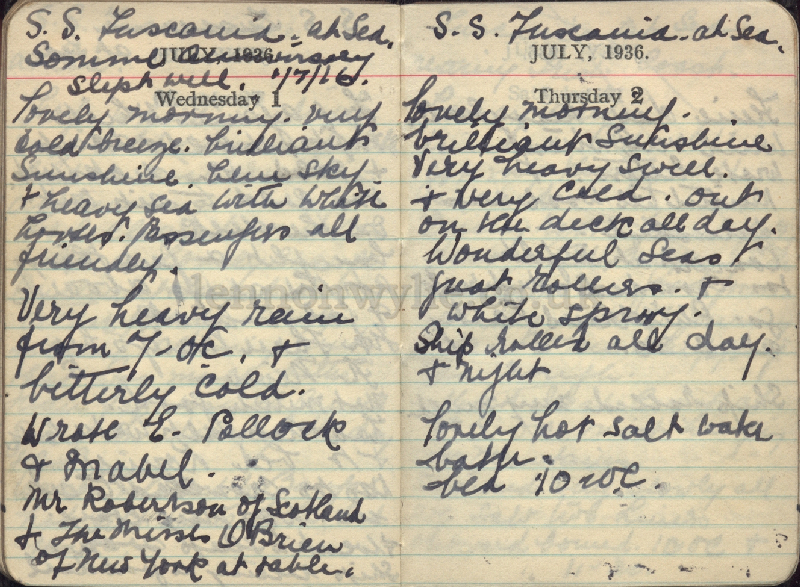 S. S. Tuscania. at Sea.
Somme Anniversary
JULY, 1936.
Slept well. 1/7/16.
Wednesday 1
lovely morning. very
cold breeze. brilliant
Sunshine. blue sky
+ heavy sea with white
horses. Passengers all
friendly.
Very heavy rain
from 7-oc. +
bitterly cold.
Wrote E. Pollock
+ Mabel.
Mr Robertson of Scotland
+ The Misses O'Brien
of New York at table.
S. S. Tuscania. at Sea.
JULY, 1936.
Thursday 2
lovely morning.
brilliant Sunshine
Very heavy swell.
+ very cold. out
on the deck all day.
Wonderful Seas +
great rollers. +
white spray.
Ship rolled all day.
+ night
lovely hot salt water
bath.
bed 10 oc.
lennonwylie